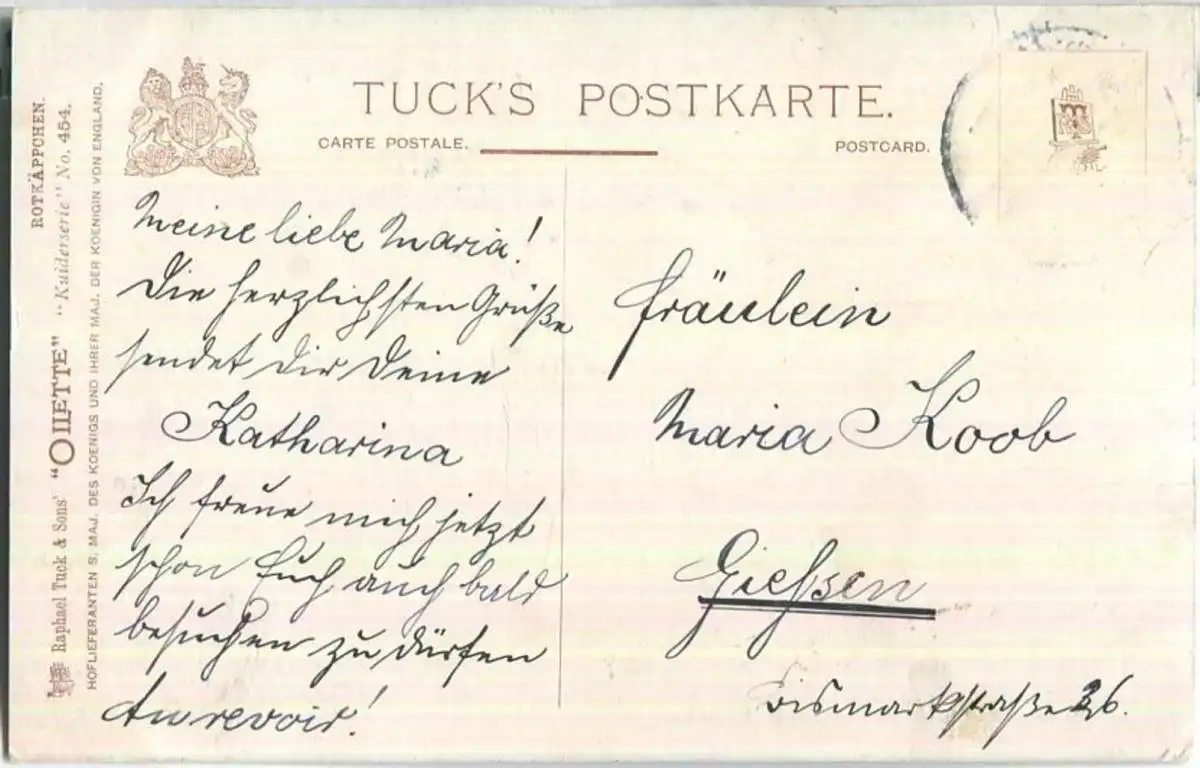 TUCK'S POSTKARTE.
CARTE POSTALE.
POSTCARD.
ROTKÄPPCHEN.
Raphael Tuck & Sons' "OILETTE" "Kinderserie" No. 454.
HOFLIEFERANTEN S. MAJ. DES KOENIGS UND IHRER MAJ. DER KOENIGIN VON ENGLAND.
Meine liebe Maria!
Die herzlichsten Grüße
sendet Dir Deine
Katharina
Ich freue mich jetzt
schon Euch auch bald
besuchen zu dürfen
Au revoir!
Fräulein
Maria Koob
Giessen
Bismarkstraße 26.